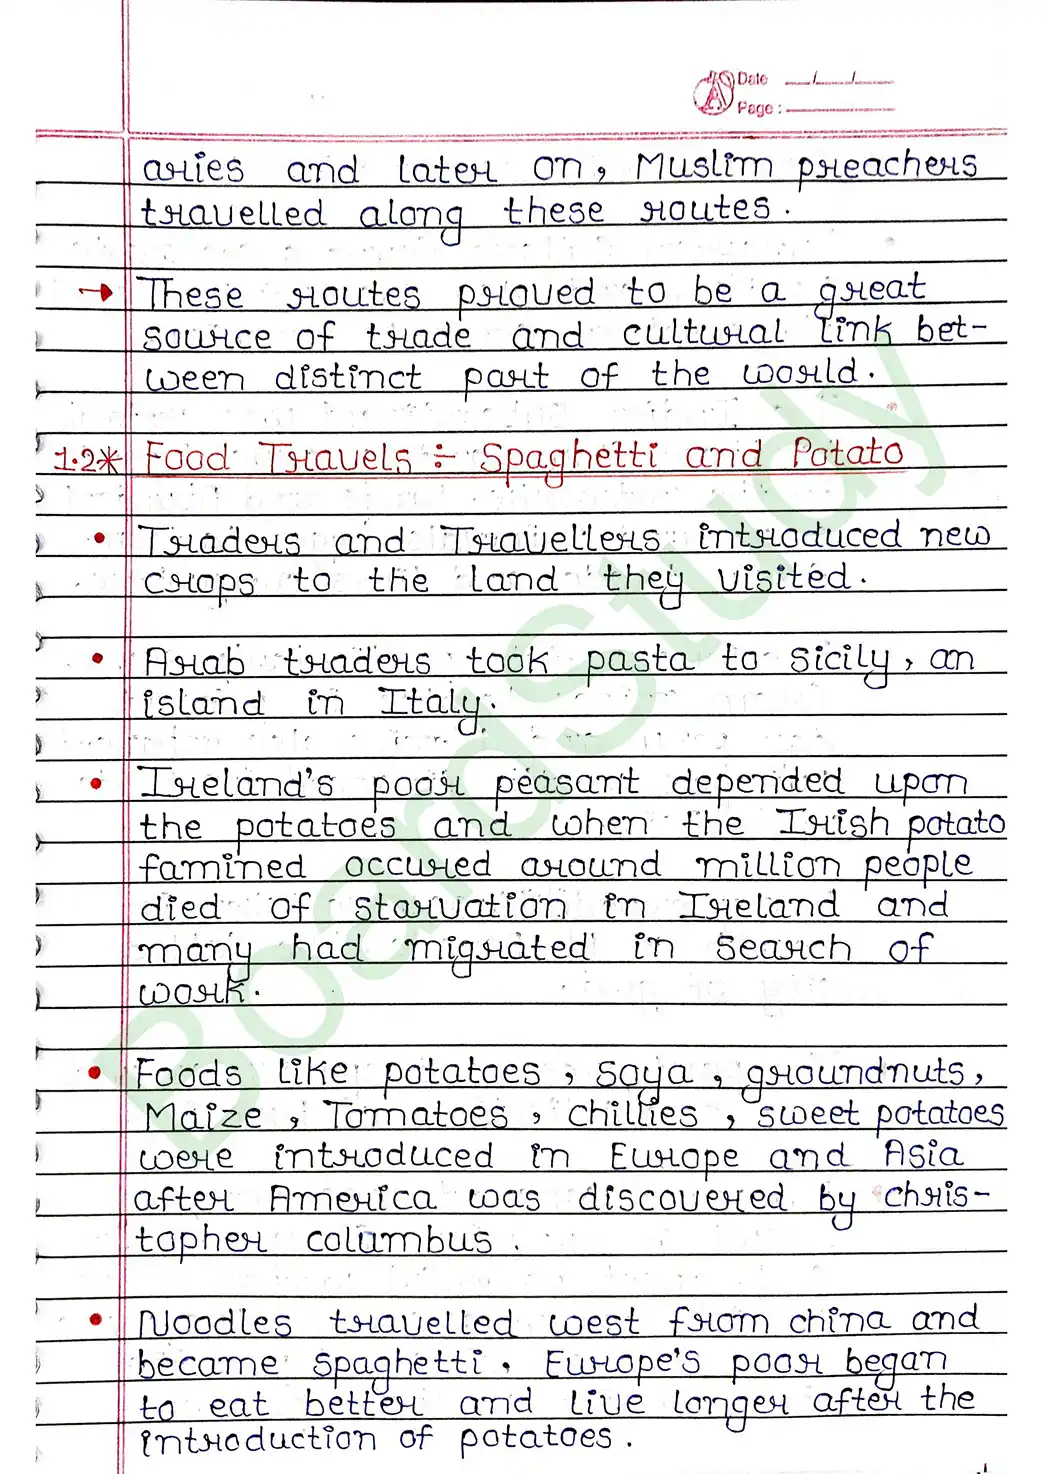 Date __/__/__
Page : ____
aries and later on, Muslim preachers
travelled along these routes.
→ These routes proved to be a great
source of trade and cultural link bet-
ween distinct part of the world.
1.2* Food Travels ÷ Spaghetti and Potato
• Traders and Travellers introduced new
crops to the land they visited.
• Arab traders took pasta to sicily, an
island in Italy.
• Ireland's poor peasant depended upon
the potatoes and when the Irish potato
famined occured around million people
died of starvation in Ireland and
many had migrated in search of
work.
• Foods like potatoes, soya, groundnuts,
Maize, Tomatoes, chillies, sweet potatoes
were introduced in Europe and Asia
after America was discovered by chris-
topher columbus.
• Noodles travelled west from china and
became spaghetti. Europe's poor began
to eat better and live longer after the
introduction of potatoes.
BoardStudy